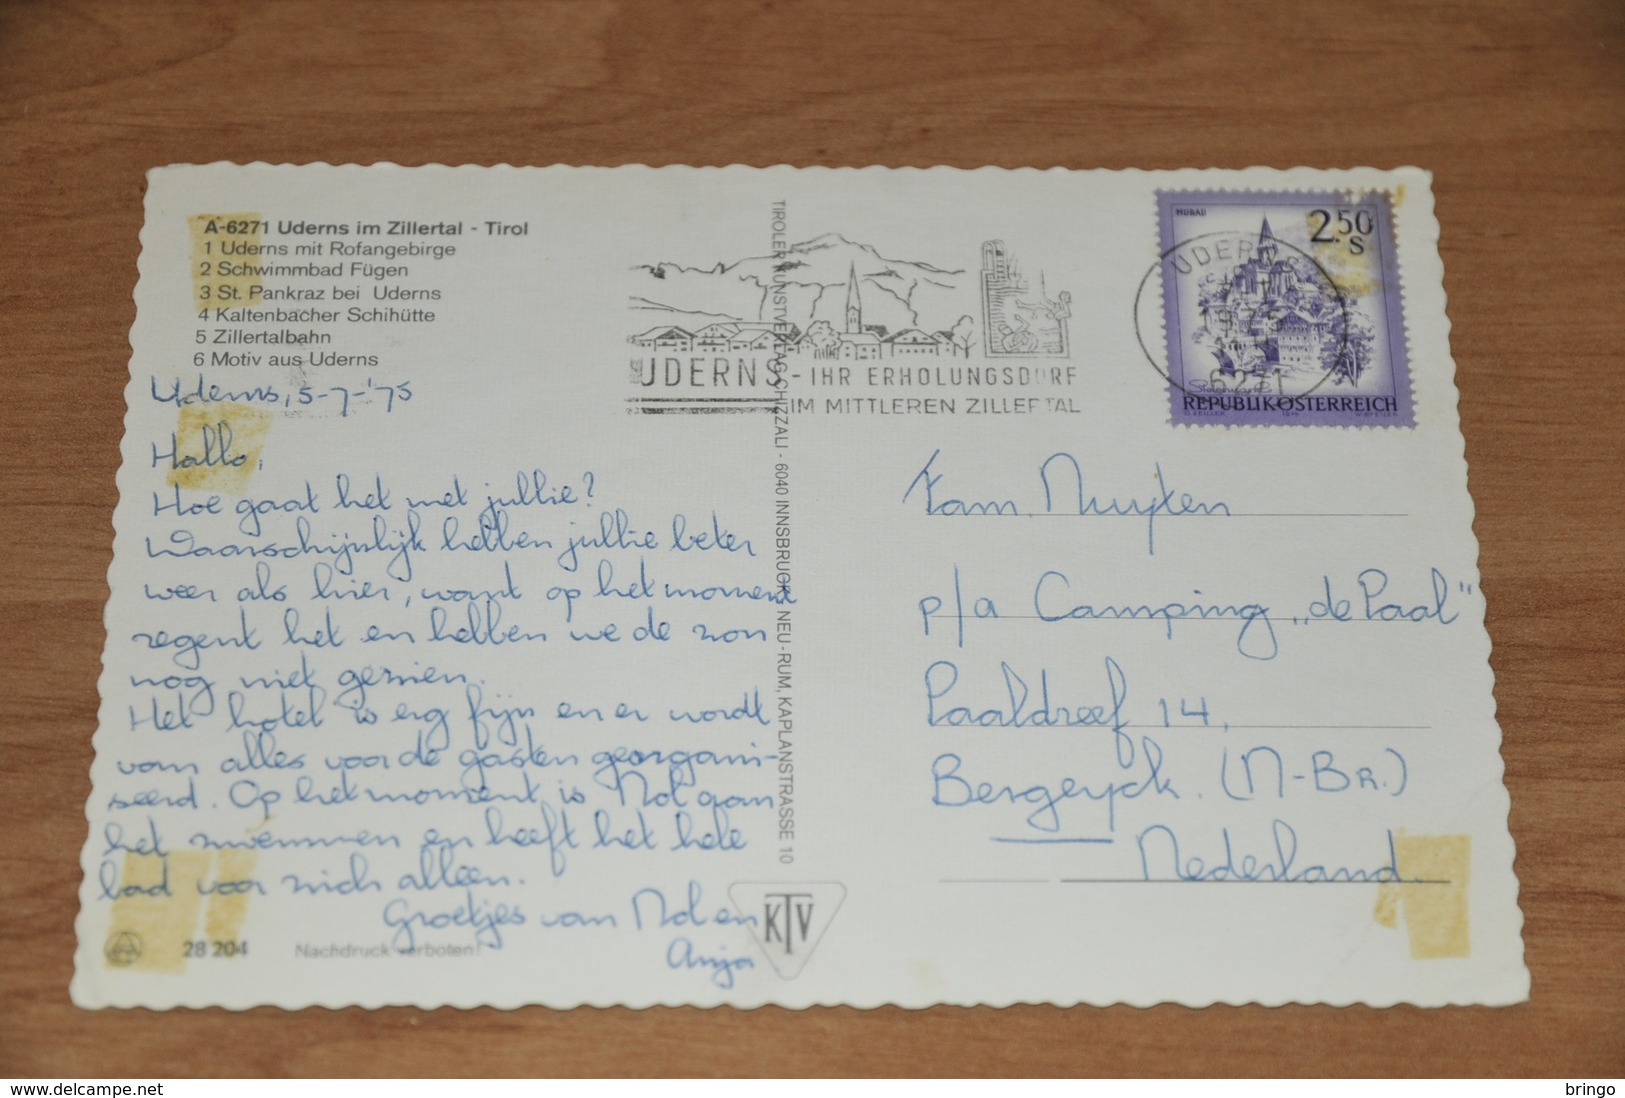 A-6271 Uderns im Zillertal - Tirol
1 Uderns mit Rofangebirge
2 Schwimmbad Fügen
3 St. Pankraz bei Uderns
4 Kaltenbacher Schihütte
5 Zillertalbahn
6 Motiv aus Uderns
Uderns, 5-7-'75
Hallo,
Hoe gaat het met jullie?
Waarschijnlijk hebben jullie beter
weer als hier, want op het moment
regent het en hebben we de zon
nog niet gezien.
Het hotel is erg fijn en er wordt
van alles voor de gasten georgani-
seerd. Op het moment is Nol gaan
het zwemmen en heeft het hele
bad voor zich alleen.
Groetjes van Nol en
Anja
28 204 Nachdruck verboten!
TIROLER KUNSTVERLAG CHIZZALI - 6040 INNSBRUCK, NEU-RUM, KAPLANSTRASSE 10
KTV
UDERNS - IHR ERHOLUNGSDORF
IM MITTLEREN ZILLERTAL
UDERNS
6271
MURAU
2.50
S
REPUBLIK ÖSTERREICH
Fam. Muyten
p/a Camping "de Paal"
Paaldreef 14,
Bergeyck. (N-Br.)
Nederland.
www.delcampe.net
bringo